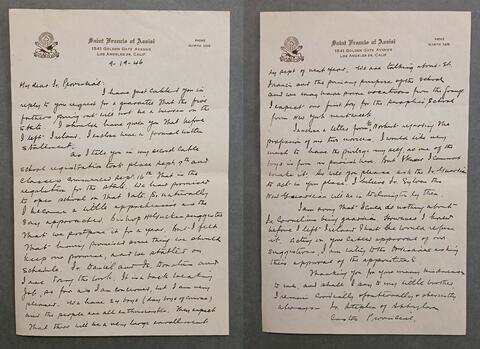 Saint Francis of Assisi
1541 GOLDEN GATE AVENUE
LOS ANGELES 26, CALIF.
PHONE
9-19-46
My dear Fr. Provincial:
I have just cabled you in
reply to your request for a guarantee that the five
fathers going out will not be a burden on the
State. I should have given you that before
I left Ireland. I enclose here a formal written
statement.
As I told you in my several cable
school registration took place Sept. 9th and
classes commenced Sept. 16th. That is the
regulation for the state. We had promised
to open school on that date &, naturally
I became a little apprehensive as the
day approached. Bishop McGucken suggested
that we postpone it for a year, but I felt
that having promised some thing we should
keep our promise, and we started on
schedule. Fr. Daniel and Fr. Stanislaus and
I are doing the work. It is a back breaking
job, as far as I am concerned, but I am very
pleased. We have 24 boys (day boys of course)
and the people are all enthusiastic. They expect
that there will be a very large enrollment
Saint Francis of Assisi
1541 GOLDEN GATE AVENUE
LOS ANGELES 26, CALIF.
PHONE
by Sept of next year. We are talking about St.
Francis and the primary purpose of the school
and we may have some vocations from the group.
I expect our first boy for the Seraphic School
from New York next week.
I enclose a letter from Fr. Norbert regarding the
profession of our two novices. I would like very
much to have the privilege myself, as one of the
boys is from our parish here. But I know I cannot
make it. So will you please ask the Fr. Guardian
to act in your place. I believe Fr. Sylvester the
New Guardian will be in Wilmington by then.
I am sorry that I could do nothing about
Fr. Cornelius being guardian. However I knew
before I left Ireland that he would refuse
it. Acting on your cabled approval of our
suggestions, I am writing to the Discretes asking
their approval of the appointments.
Thanking you for your many kindnesses
to me, and shall I say to my little brother
I remain cordially affectionately & obediently
always - Fr. Stephen of Abbeyleix
Custos Provincial.